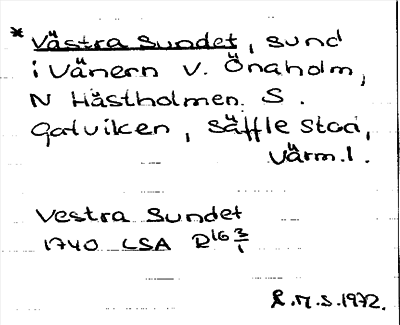 * Västra Sundet, sund
i Vänern V. Önaholm,
N Hästholmen. S.
Gatviken, Säffle stad,
Värml.
Vestra Sundet
1740 LSA R16 3/1
R.M.S. 1972.